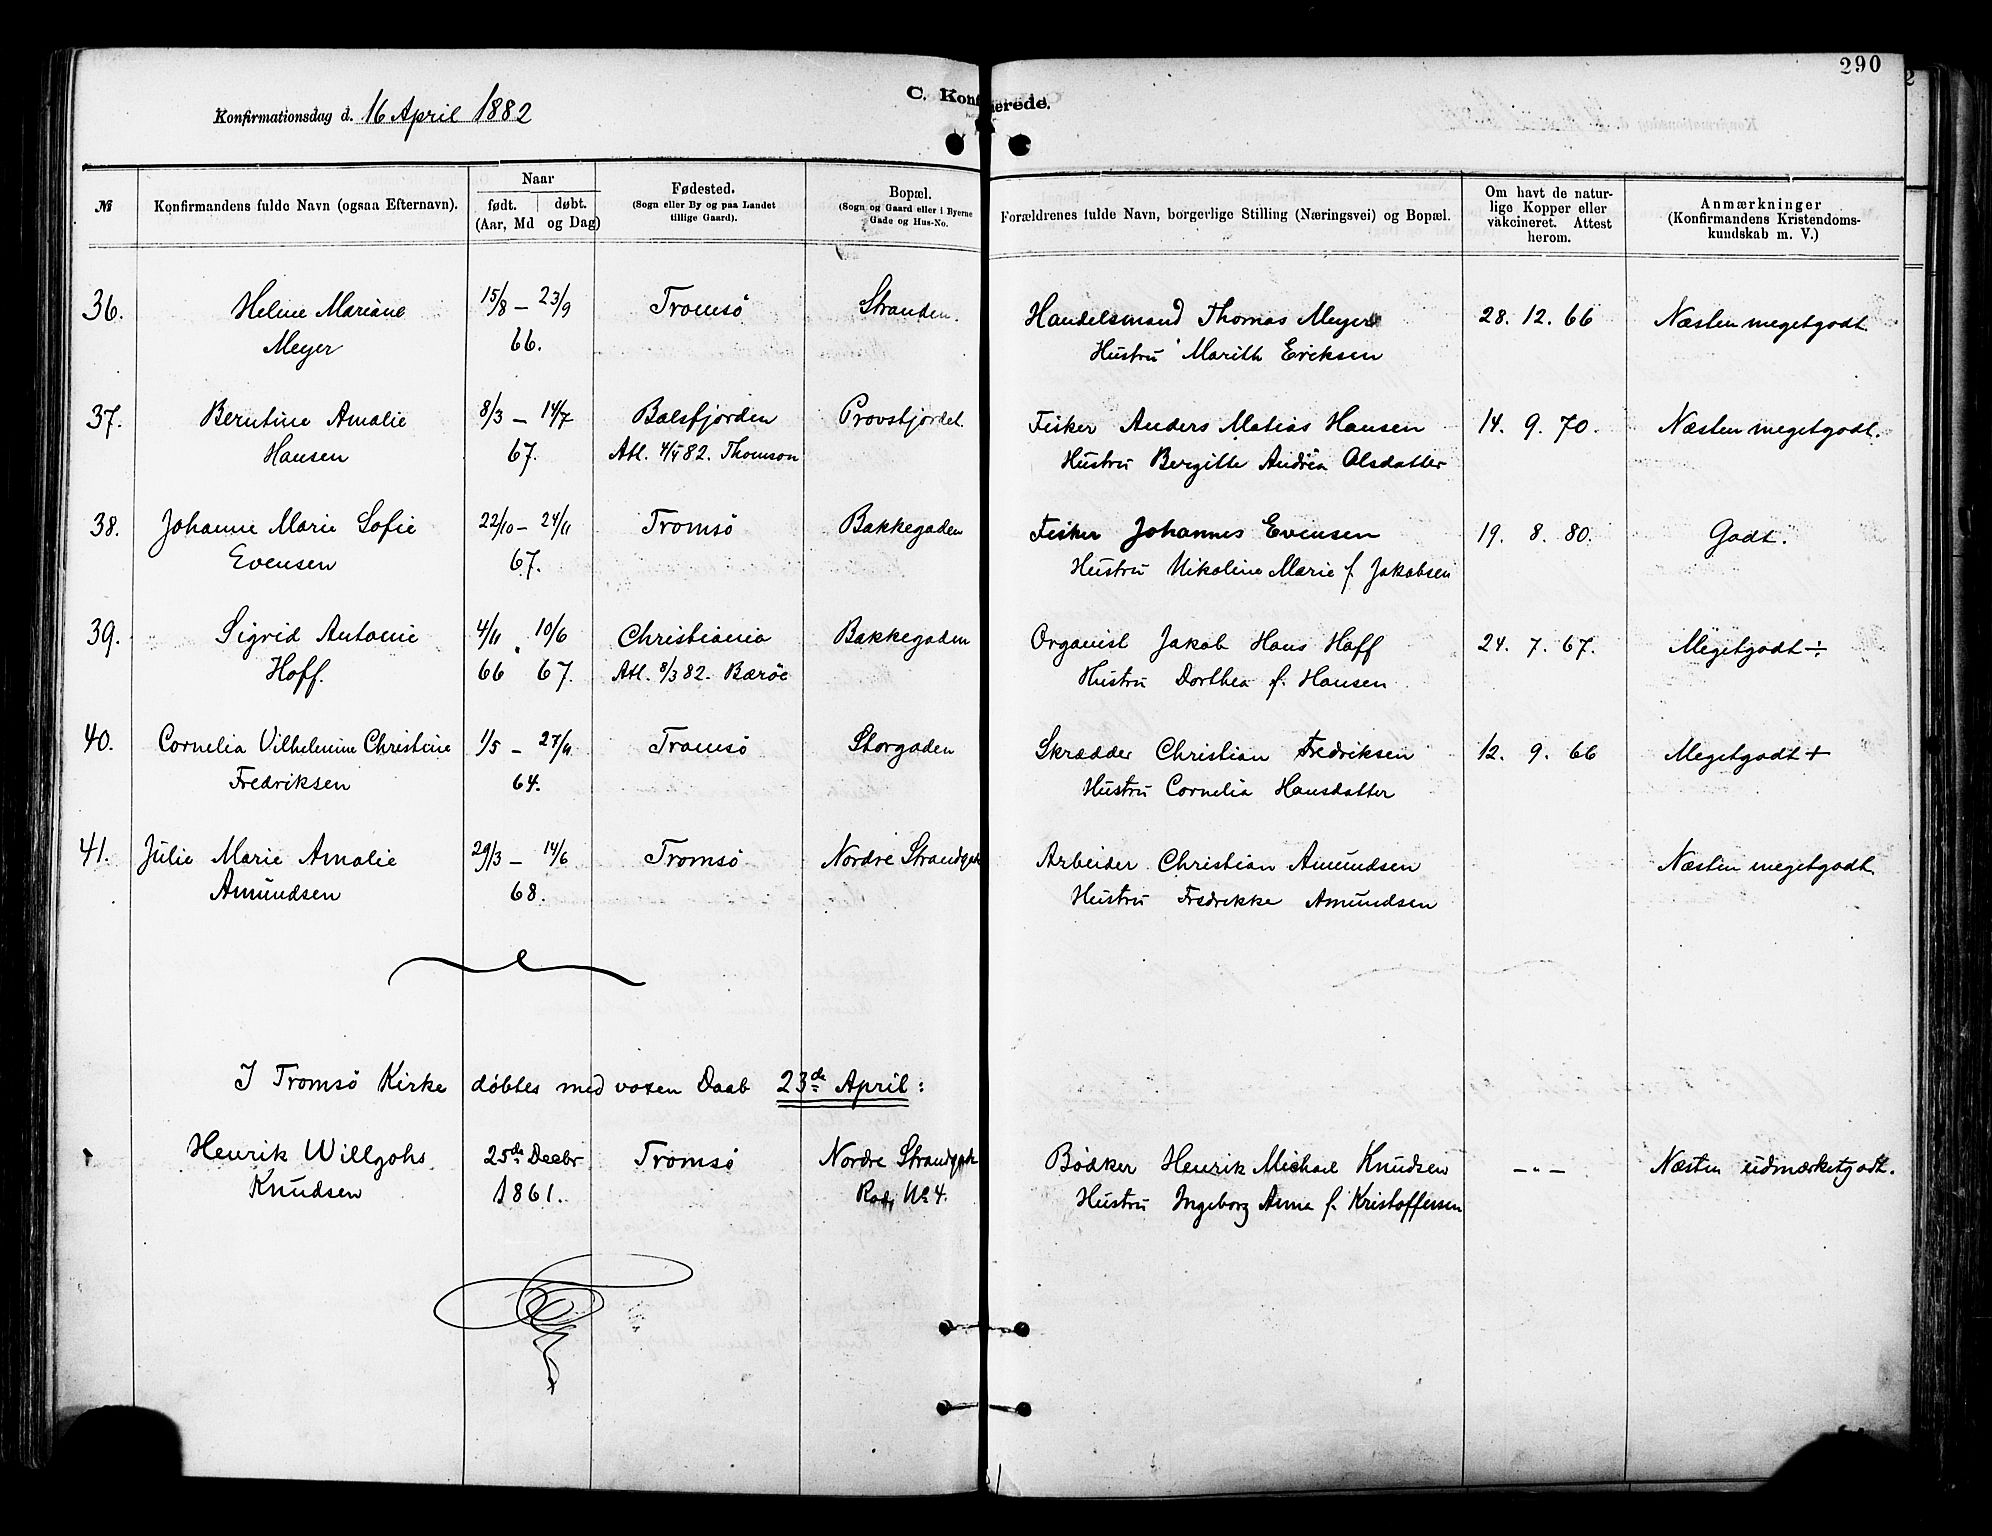 290
C. Konfirmerede.
Konfirmationsdag d. 16 April 1882
№
Konfirmandens fulde Navn (ogsaa Efternavn).
Naar
født. døbt.
(Aar, Md og Dag)
Fødested.
(Sogn eller By og paa Landet
tillige Gaard).
Bopæl.
(Sogn og Gaard eller i Byerne
Gade og Hus-No.
Forældrenes fulde Navn, borgerlige Stilling (Næringsvei) og Bopæl.
Om havt de natur-
lige Kopper eller
vakcineret. Attest
herom.
Anmærkninger
(Konfirmandens Kristendoms-
kundskab m. V.)
36. Heline Mariane 15/8 – 23/9 Tromsö Stranden. Handelsmand Thomas Meyer 28. 12. 66 Næsten megetgodt.
Meyer 66. Hustru Marith Ericksen
37. Berntine Amalie 8/3 – 14/7 Balsfjorden Provstjordet. Fisker Anders Matias Hansen 14. 9. 70. Næsten megetgodt.
Hansen 67. Att. 82. Thomson Hustru Bergitte Andrea Olsdatter
38. Johanne Marie Sofie 22/10 – 24/11 Tromsö Bakkegaden Fisker Johannes Evensen 19. 8. 80. Godt.
Evensen 67. Hustru Nikoline Marie f. Jakobsen
39. Sigrid Antonie 4/11 . 10/6 Christiania Bakkegaden Organist Jakob Hans Hoff 24. 7. 67. Megetgodt ÷
Hoff. 66 67. Att. 8/3 82. Bærøe Hustru Dorthea f. Hansen
40. Cornelia Vilhelmine Christine 1/5 – Tromsö Storgaden Skrædder Christian Fredriksen 12. 9. 66 Megetgodt +
Fredriksen 64. Hustru Cornelia Hansdatter
41. Julie Marie Amalie 29/3 – 14/6 Tromsö Nordre Strandgade Arbeider Christian Amundsen Næsten megetgodt.
Amundsen 68. Hustru Fredrikke Amundsen
I Tromsö Kirke döbtes med voxen Daab 23de April:
Henrik Willgohs 25de Decbr Tromsö Nordre Strandgade Bödker Henrik Michael Knudsen –"– Næsten udmærketgodt.
Knudsen 1861. № 4. Hustru Ingeborg Anna f. Kristoffersen